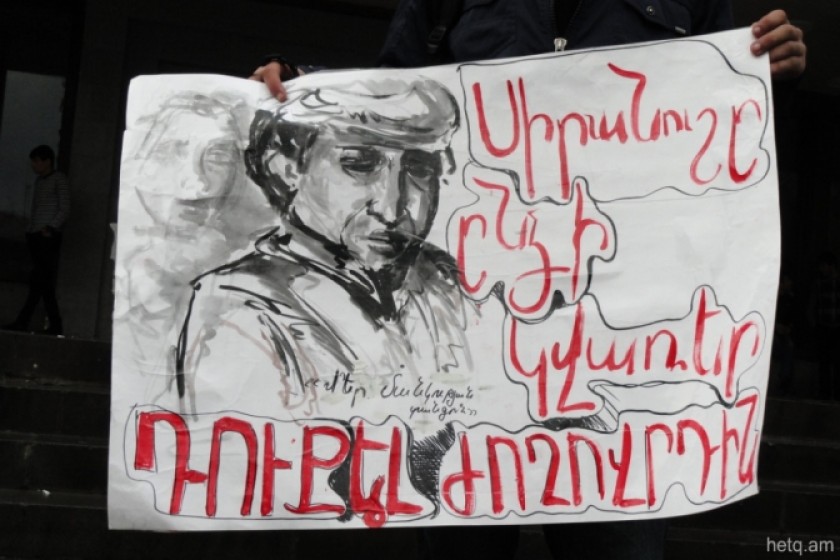 Սիրանուշը
ընձի
կվառեր
«Մեր մանկության
տանգոն»
ԴՈՒՔ ԷԼ ԺՈՂՈՎՐԴԻՆ
hetq.am